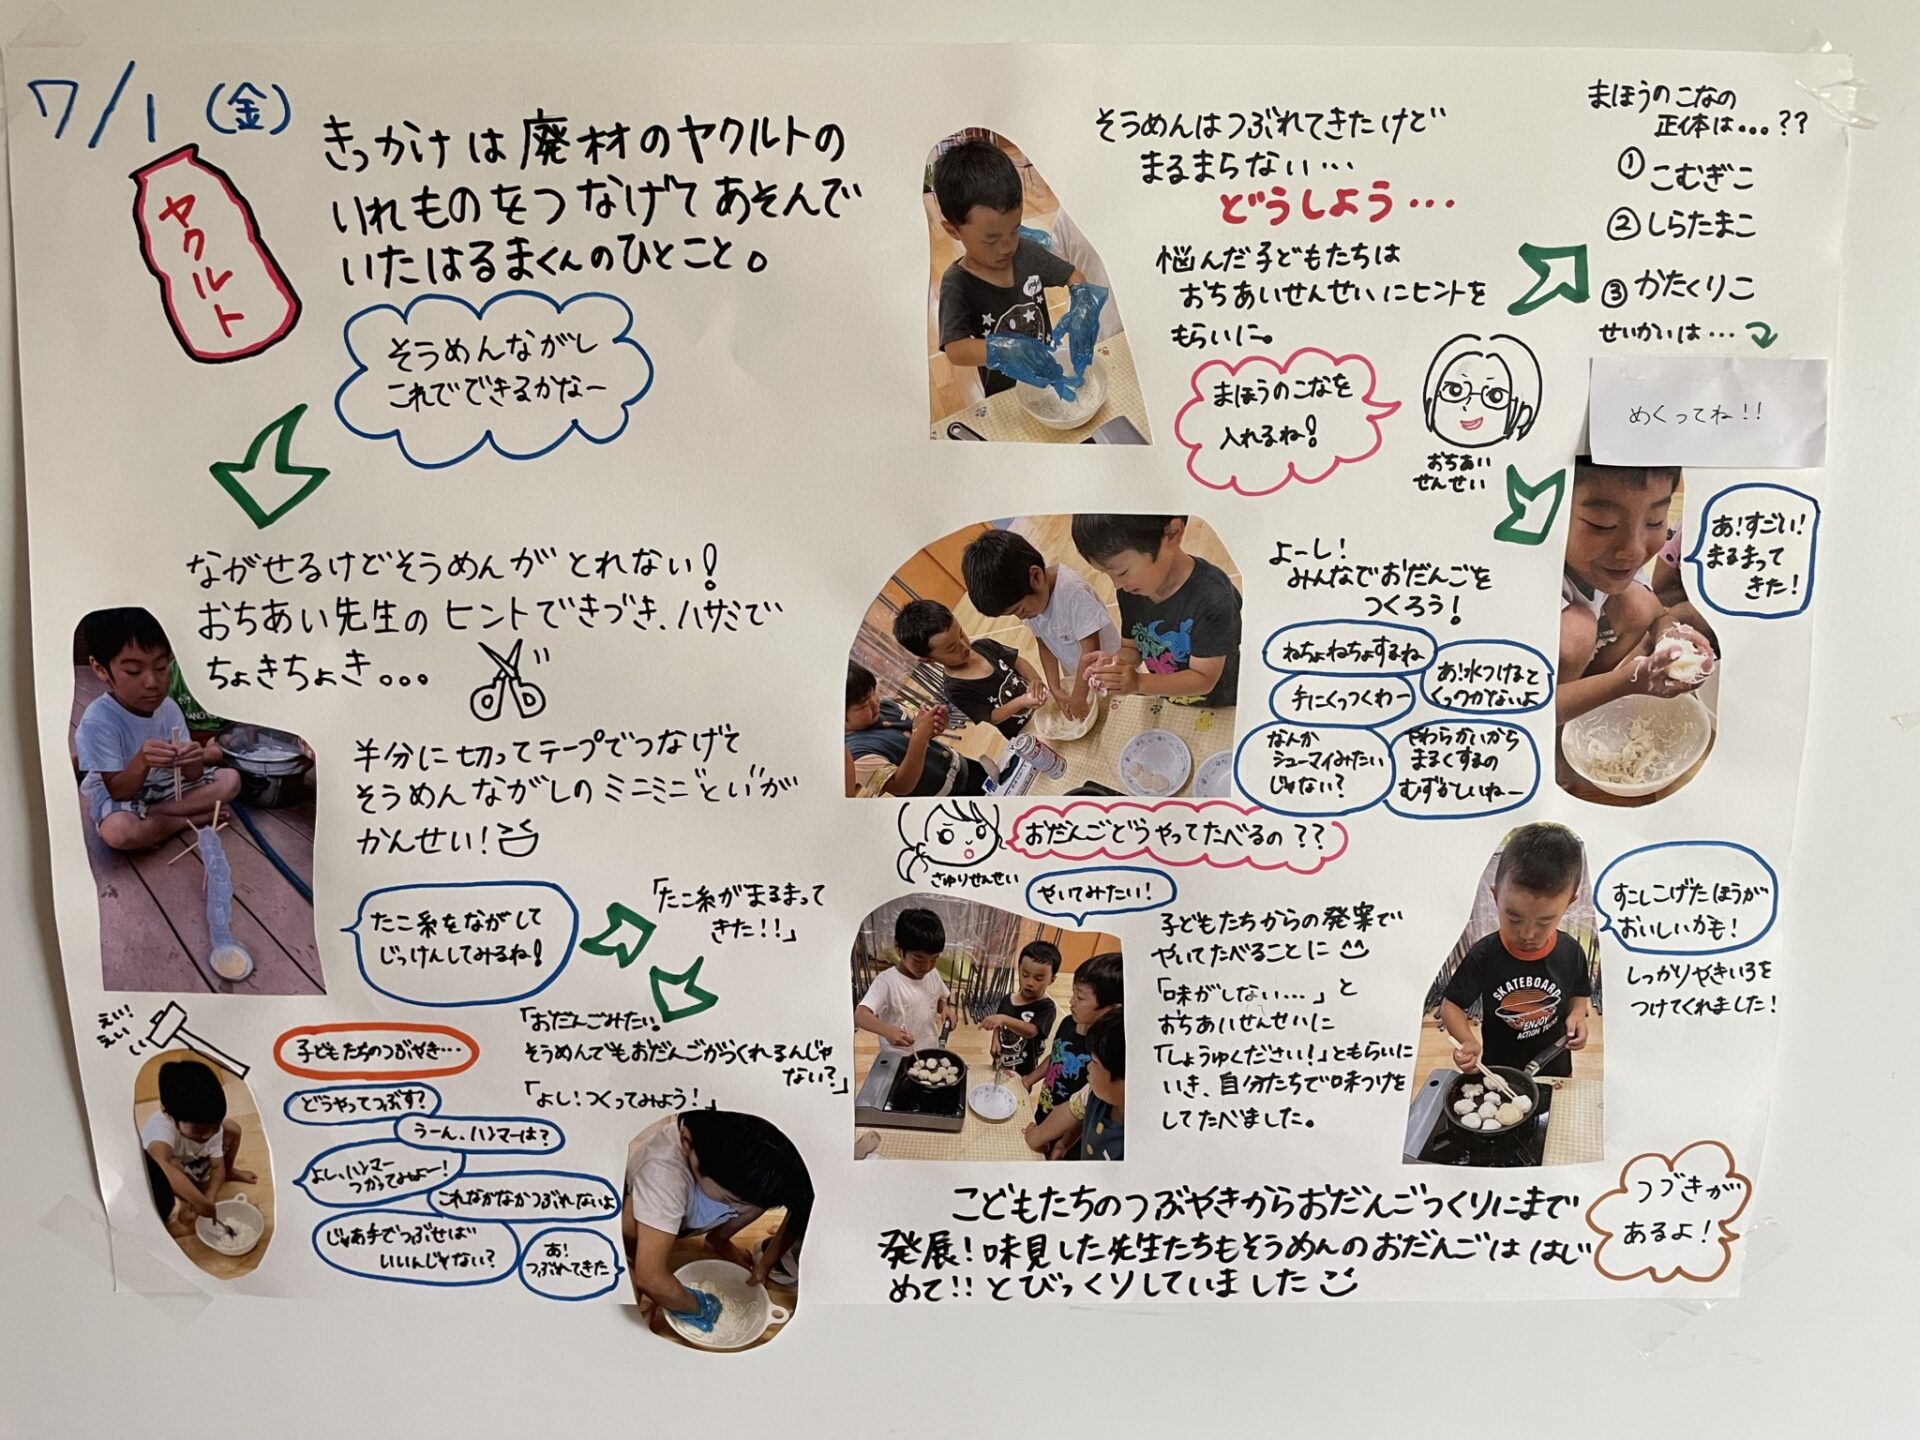 7/1(金)
ヤクルト
きっかけは廃材のヤクルトの
いれものをつなげてあそんで
いたはるまくんのひとこと。
そうめんながし
これでできるかなー
ながせるけどそうめんがとれない!
おちあい先生のヒントできづき、ハサミで
ちょきちょき。。。
半分に切ってテープでつなげて
そうめんながしのミニミニどいが
かんせい!
たこ糸をながして
じっけんしてみるね!
「たこ糸がまるまって
きた!!」
「おだんごみたい。
そうめんでもおだんごがつくれるんじゃ
ない?」
「よし!つくってみよう!」
えい!
えい
子どもたちのつぶやき…
どうやってつぶす?
うーん、ハンマーは?
よし、ハンマー
つかってみよー!
これなかなかつぶれないよ
じゃあ手でつぶせば
いいんじゃない?
あ!
つぶれてきた
そうめんはつぶれてきたけど
まるまらない…
どうしよう…
悩んだ子どもたちは
おちあいせんせいにヒントを
もらいに。
まほうのこなを
入れるね!
おちあい
せんせい
まほうのこなの
正体は…??
①こむぎこ
②しらたまこ
③かたくりこ
せいかいは…
めくってね!!
あ!すごい!
まるまって
きた!
よーし!
みんなでおだんごを
つくろう!
ねちょねちょするね
手にくっつくわー
あ!水つけると
くっつかないよ
なんか
シューマイみたい
じゃない?
やわらかいから
まるくするの
むずかしいねー
おだんごどうやってたべるの??
さゆりせんせい
やいてみたい!
子どもたちからの発案で
やいてたべることに
「味がしない…」と
おちあいせんせいに
「しょうゆください!」ともらいに
いき、自分たちで味つけを
してたべました。
SKATEBOARD
ENJOY
すこしこげたほうが
おいしいかも!
しっかりやきいろを
つけてくれました!
こどもたちのつぶやきからおだんごつくりにまで
発展!味見した先生たちもそうめんのおだんごははじ
めて!!とびっくりしていました
つづきが
あるよ!